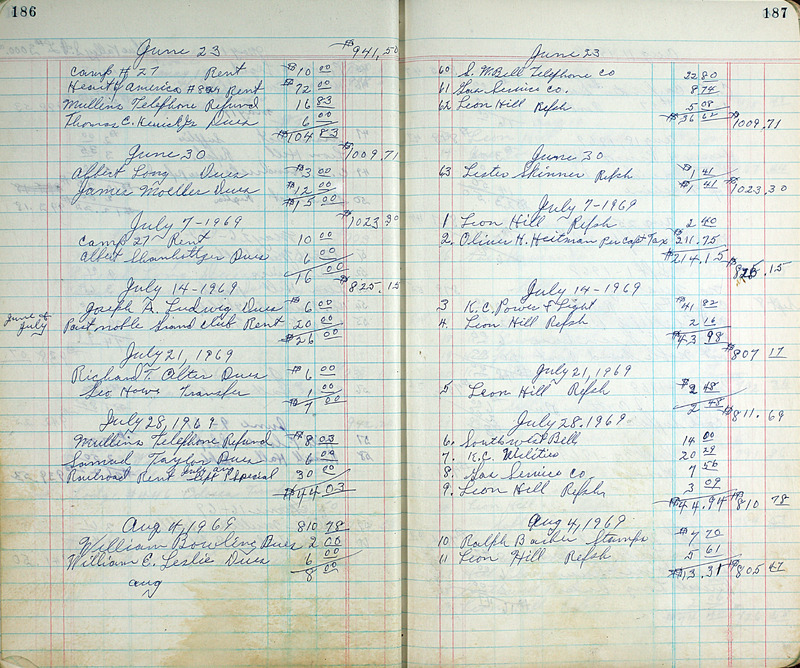 186
June 23 $941.50
Camp #27 Rent $10 00
Heart of America #824 Rent 72 00
Mullins Telephone Refund 16 83
Thomas C. Dues 6 00
$104 83
June 30 $1009.71
Albert Long Dues $3 00
James Moeller Dues $12 00
$15 00
July 7-1969 $1023 30
Camp 27 Rent 10 00
Albert Dues 6 00
16 00
July 14-1969 $825.15
Joseph A. Ludwig Dues $6 00
June & July Past noble Grand Club Rent 20 00
$26 00
July 21, 1969
Richard T. Alter Dues $6 00
Geo Hows Transfer 1 00
$7 00
July 28, 1969
Mullins Telephone Refund $8 03
Samuel Taylor Dues 6 00
Railroad Rent Special 30 00
$44 03
Aug 4, 1969 810 78
William Bowling Dues 2 00
William E. Leslie Dues 6 00
8 00
Aug
187
June 23
60 S. W. Bell Telephone Co 22 80
61 Gas Service Co. 8 74
62 Leon Hill Refsh 5 08
$36 62 $1009.71
June 30
63 Lester Skinner Refsh $1 41
$1 41 $1023.30
July 7-1969
1 Leon Hill Refsh 2 40
2. Oliver H. Heitman Per Capt Tax $211.75
$214.15 $825.15
July 14-1969
3 K.C. Power & Light $41 82
4. Leon Hill Refsh 2 16
$43 98 $807 17
July 21, 1969
5 Leon Hill Refsh $2 48
2 48 $811.69
July 28, 1969
6. Southwest Bell 14 00
7. K.C. Utilities 20 29
8. Gas Service Co 7 56
9. Leon Hill Refsh 3 09
$44.94 $810 78
Aug 4, 1969
10 Ralph Stamps $7 70
11 Leon Hill Refsh 5 61
$13.31 $805 47